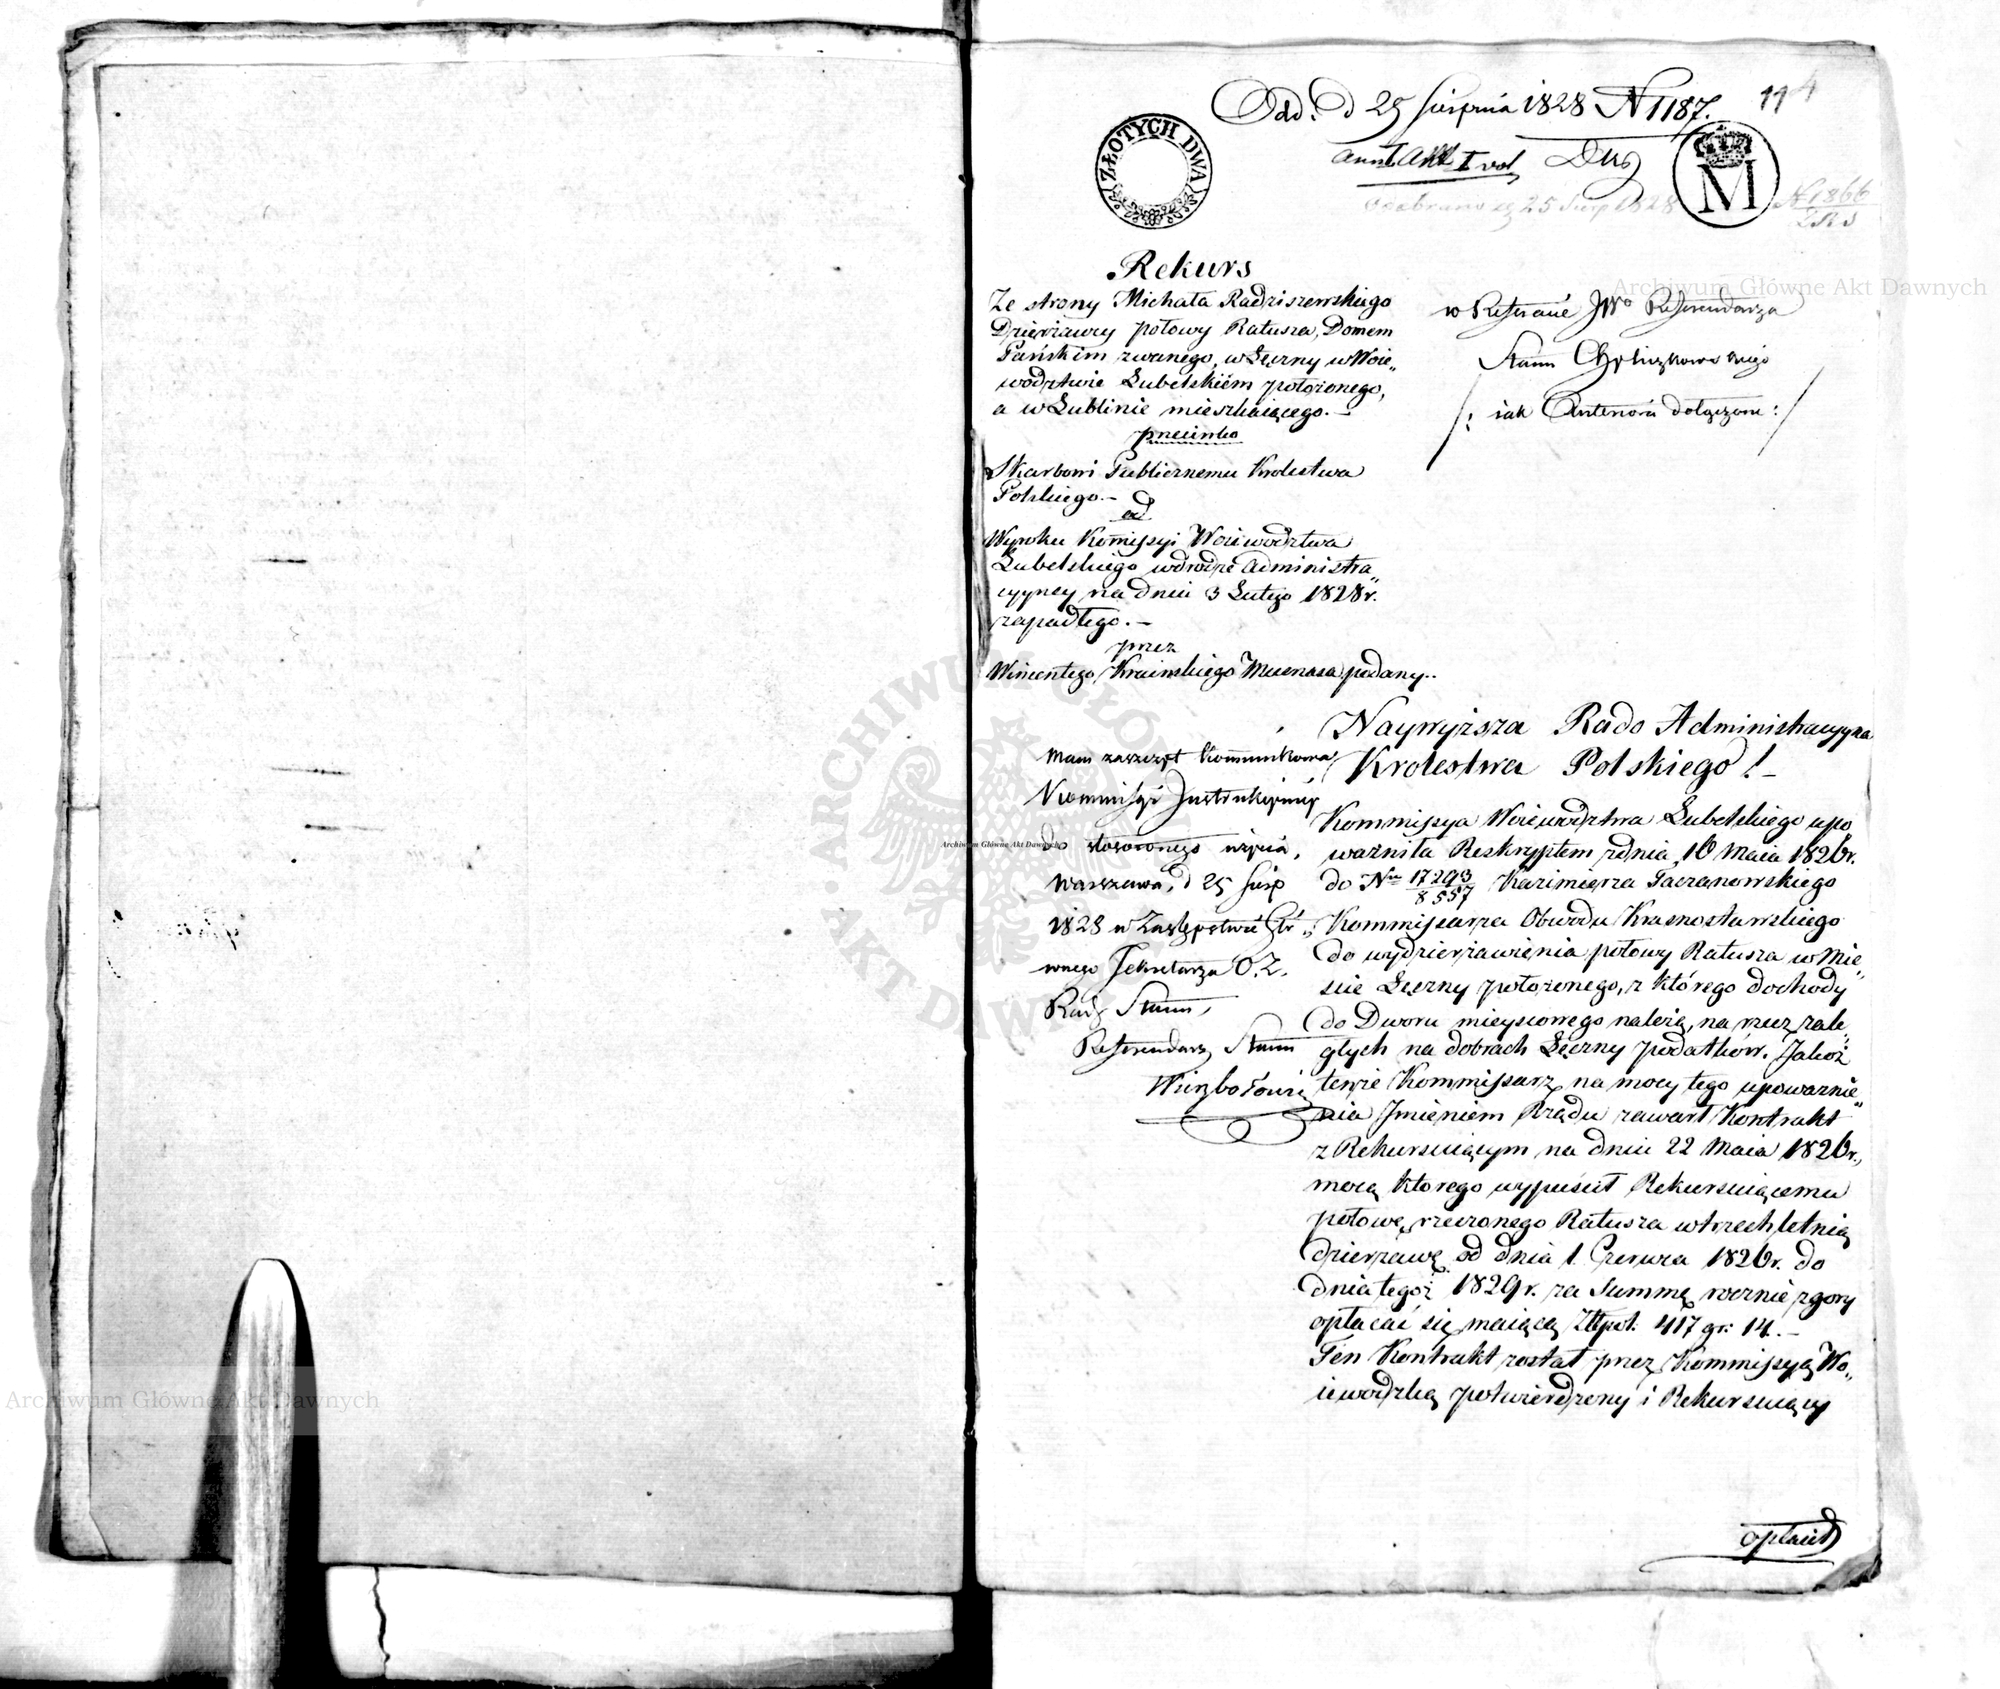 Odd. d 25 Sierpnia 1828 N 1187.
114
ZŁOTYCH DWA
M
vol
odebrano 25 Sierp 1828
N 1866
Rekurs
Ze strony Michała Radziszewskiego
Dzierżawcy połowy Ratusza, Domem
Pańskim zwanego, w Łęczny w Woie„
wodztwie Lubelskiém położonego,
a w Lublinie mieszkaiącego.–
przeciwko
Skarbowi Publicznemu Krolestwa
Polskiego.–
od
Wyroku Kommissyi Woiewodztwa
Lubelskiego w drodze administra„
cyyney na dniu 3 Lutego 1828 r.
zapadłego.–
przez
Wincentego Kraińskiego Mecenasa podany..
w Referacie JWo Referendarza
Stanu
/: iak Anteriora dołączone :/
Mam zaszczyt kommunikować
Kommissyi Instrukcyiney
do stosownego użycia,
Warszawa, d 25 Sierp
1828 w Zastępstwie Głó„
wnego Sekretarza
Rady Stanu,
Referendarz Stanu
Naywyższa Rado Administracyyna
Krolestwa Polskiego! –
Kommissya Woiewodztwa Lubelskiego upo„
ważniła Reskryptem z dnia 10 Maia 1826 r.
do Nru 17293/8557 Kazimierza Taczanowskiego
Kommissarza Obwodu Krasnostawskiego
do wydzierżawienia połowy Ratusza w Mie„
scie Łęczny położonego, z którego dochody
do Dworu mieyscowego należą, na rzecz zale„
głych na dobrach Łęczny podatków. Jakoż
tenże Kommissarz na mocy tego upoważnie„
nia Jmieniem Rządu zawarł Kontrakt
z Rekursuiącym na dniu 22 Maia 1826 r.,
mocą ktorego wypuścił Rekursuiącemu
połowę rzeczonego Ratusza w trzechletnią
dzierżawę od dnia 1 Czerwca 1826 r. do
dnia tegoż 1829 r. za Summę rocznie z gory
opłacać się maiącą Złłpol. 417 gr: 14.–
Ten Kontrakt został przez Kommissyą Wo„
iewodzką potwierdzony i Rekursuiący
opłacił
Archiwum Główne Akt Dawnych
Archiwum Główne Akt Dawnych
Archiwum Główne Akt Dawnych
ARCHIWUM GŁÓWNE AKT DAWNYCH